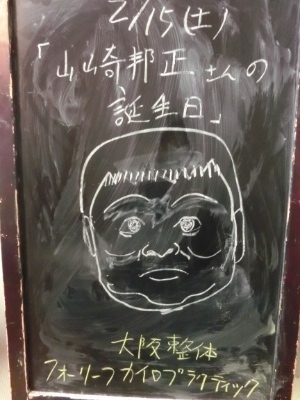 2/15(土)
「山崎邦正さんの
誕生日」
大阪整体
フォーリーフカイロプラクティック